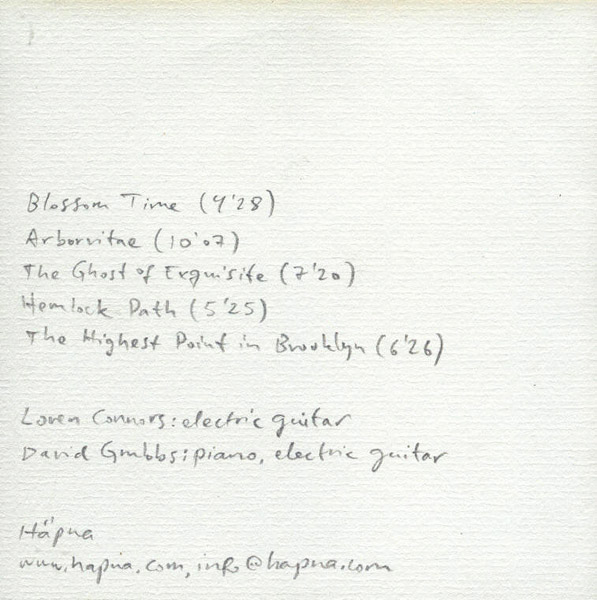 Blossom Time (9'28)
Arborvitae (10'07)
The Ghost of Exquisite (7'20)
Hemlock Path (5'25)
The Highest Point in Brooklyn (6'26)
Loren Connors: electric guitar
David Grubbs: piano, electric guitar
Häpna
www.hapna.com, info@hapna.com